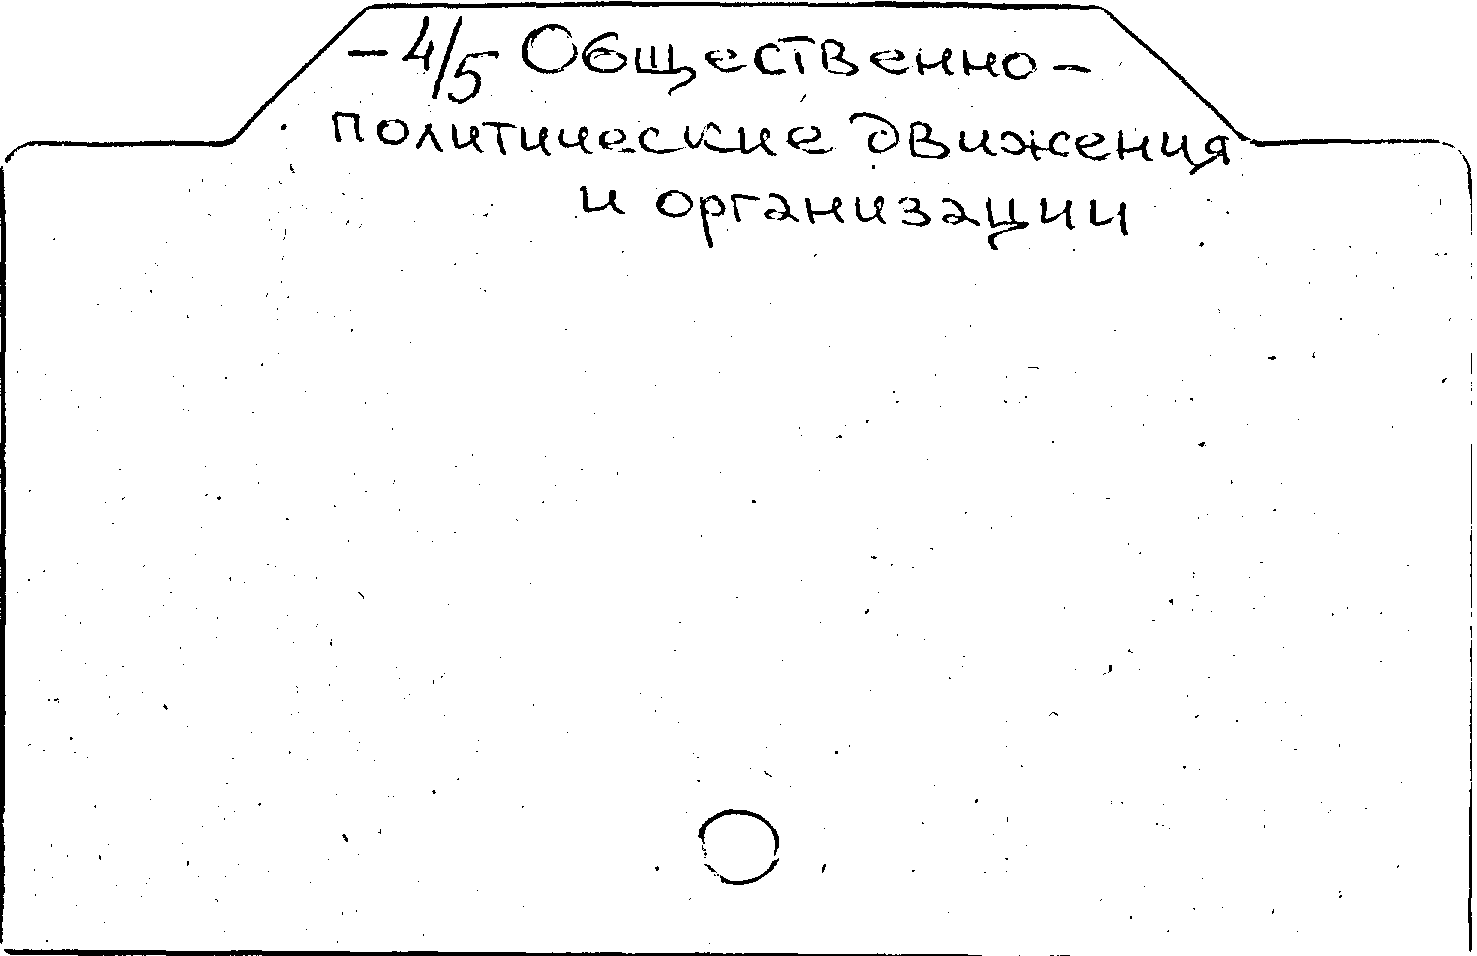 -4/5 Общественно-
политические движения
и организации